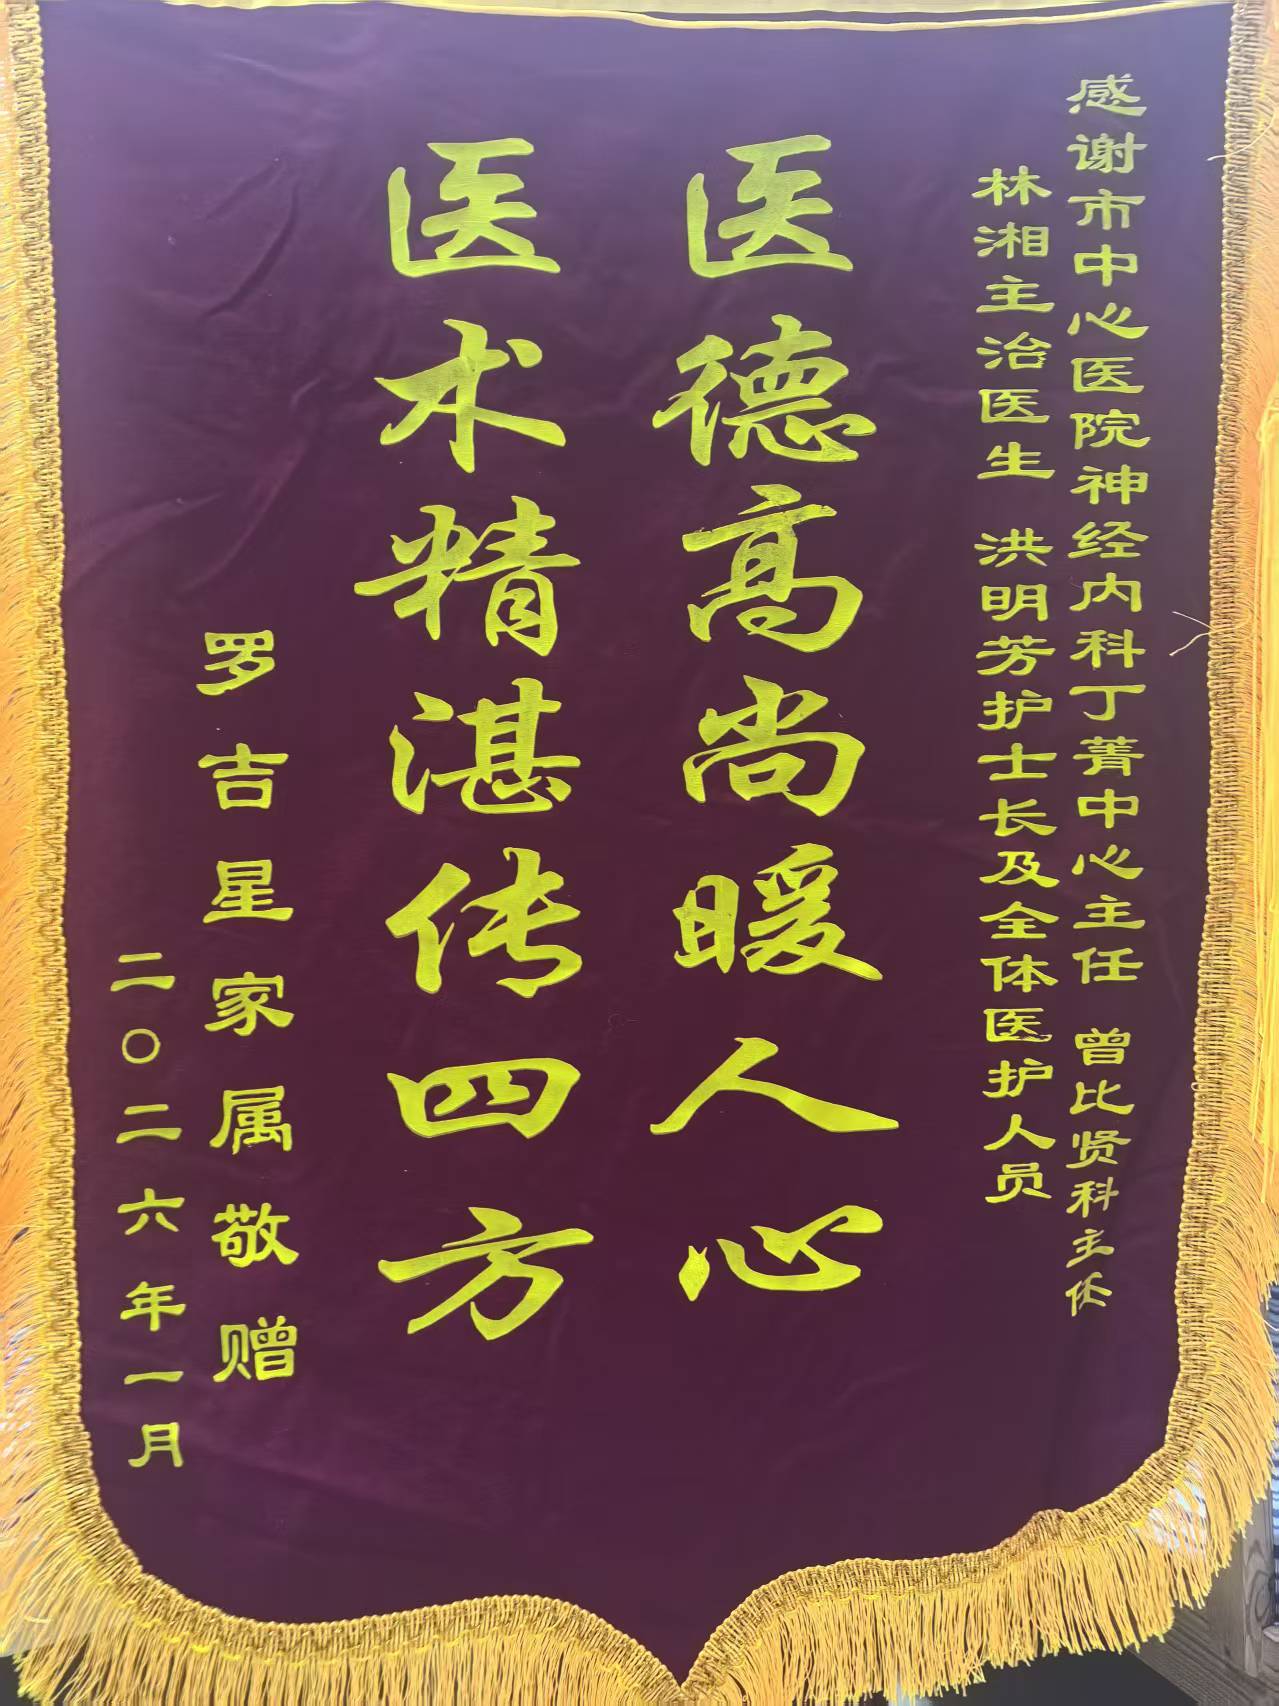 感谢市中心医院神经内科丁菁中心主任 曾比贤科主任
林湘主治医生 洪明芳护士长及全体医护人员
医德高尚暖人心
医术精湛传四方
罗吉星家属敬赠
二〇二六年一月